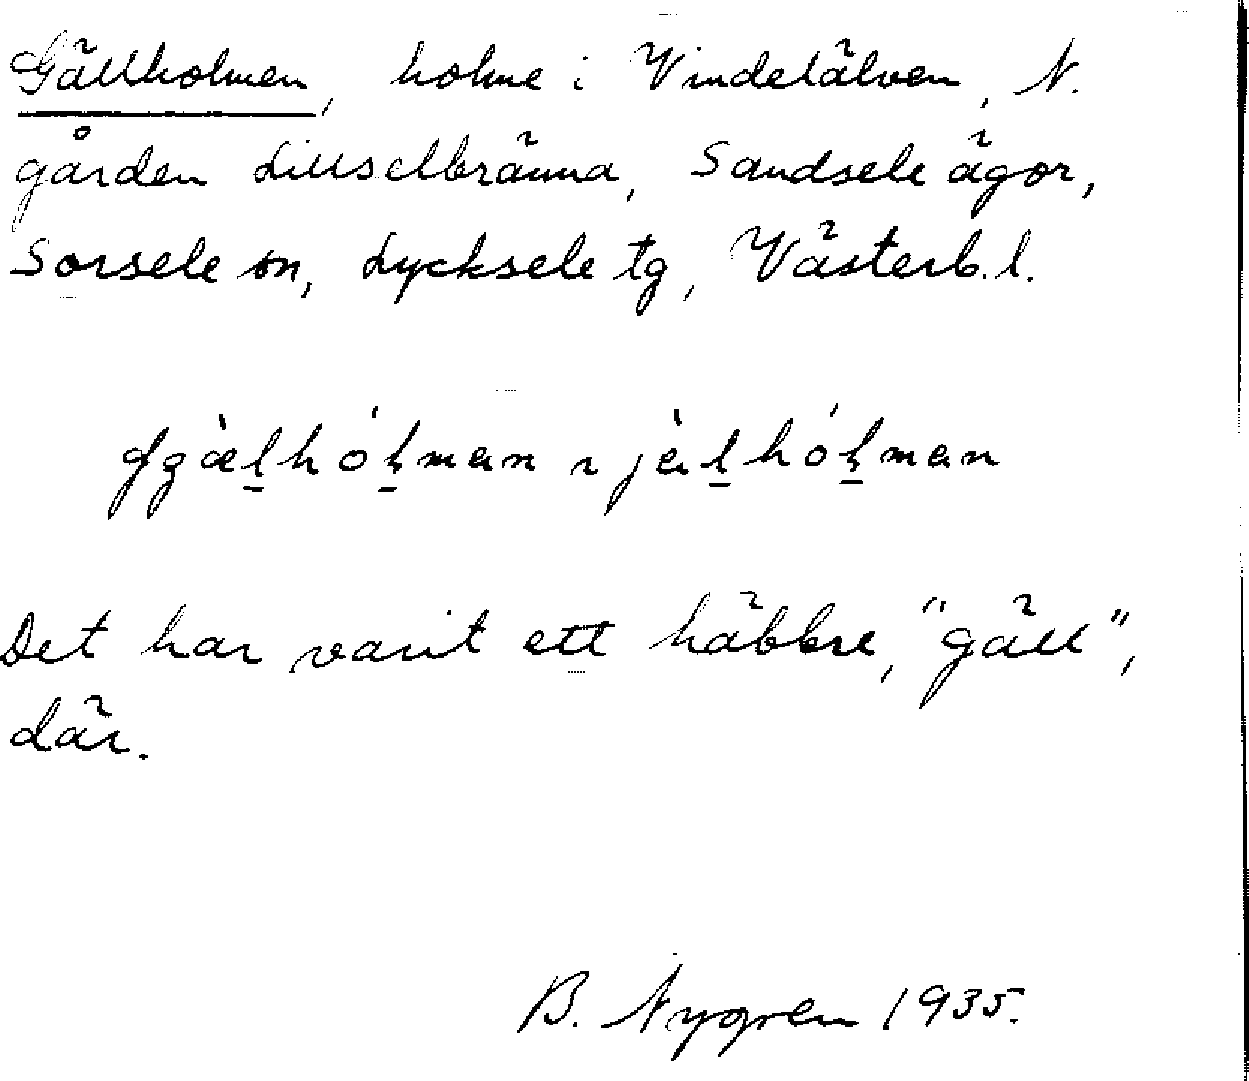 Gällholmen, holme i Vindelälven, N.
gården Lillselbränna, Sandsele ägor,
Sorsele sn, Lycksele tg, Västerb.l.
Det har varit ett häbbre, "gäll",
där.
B. Nygren 1935.